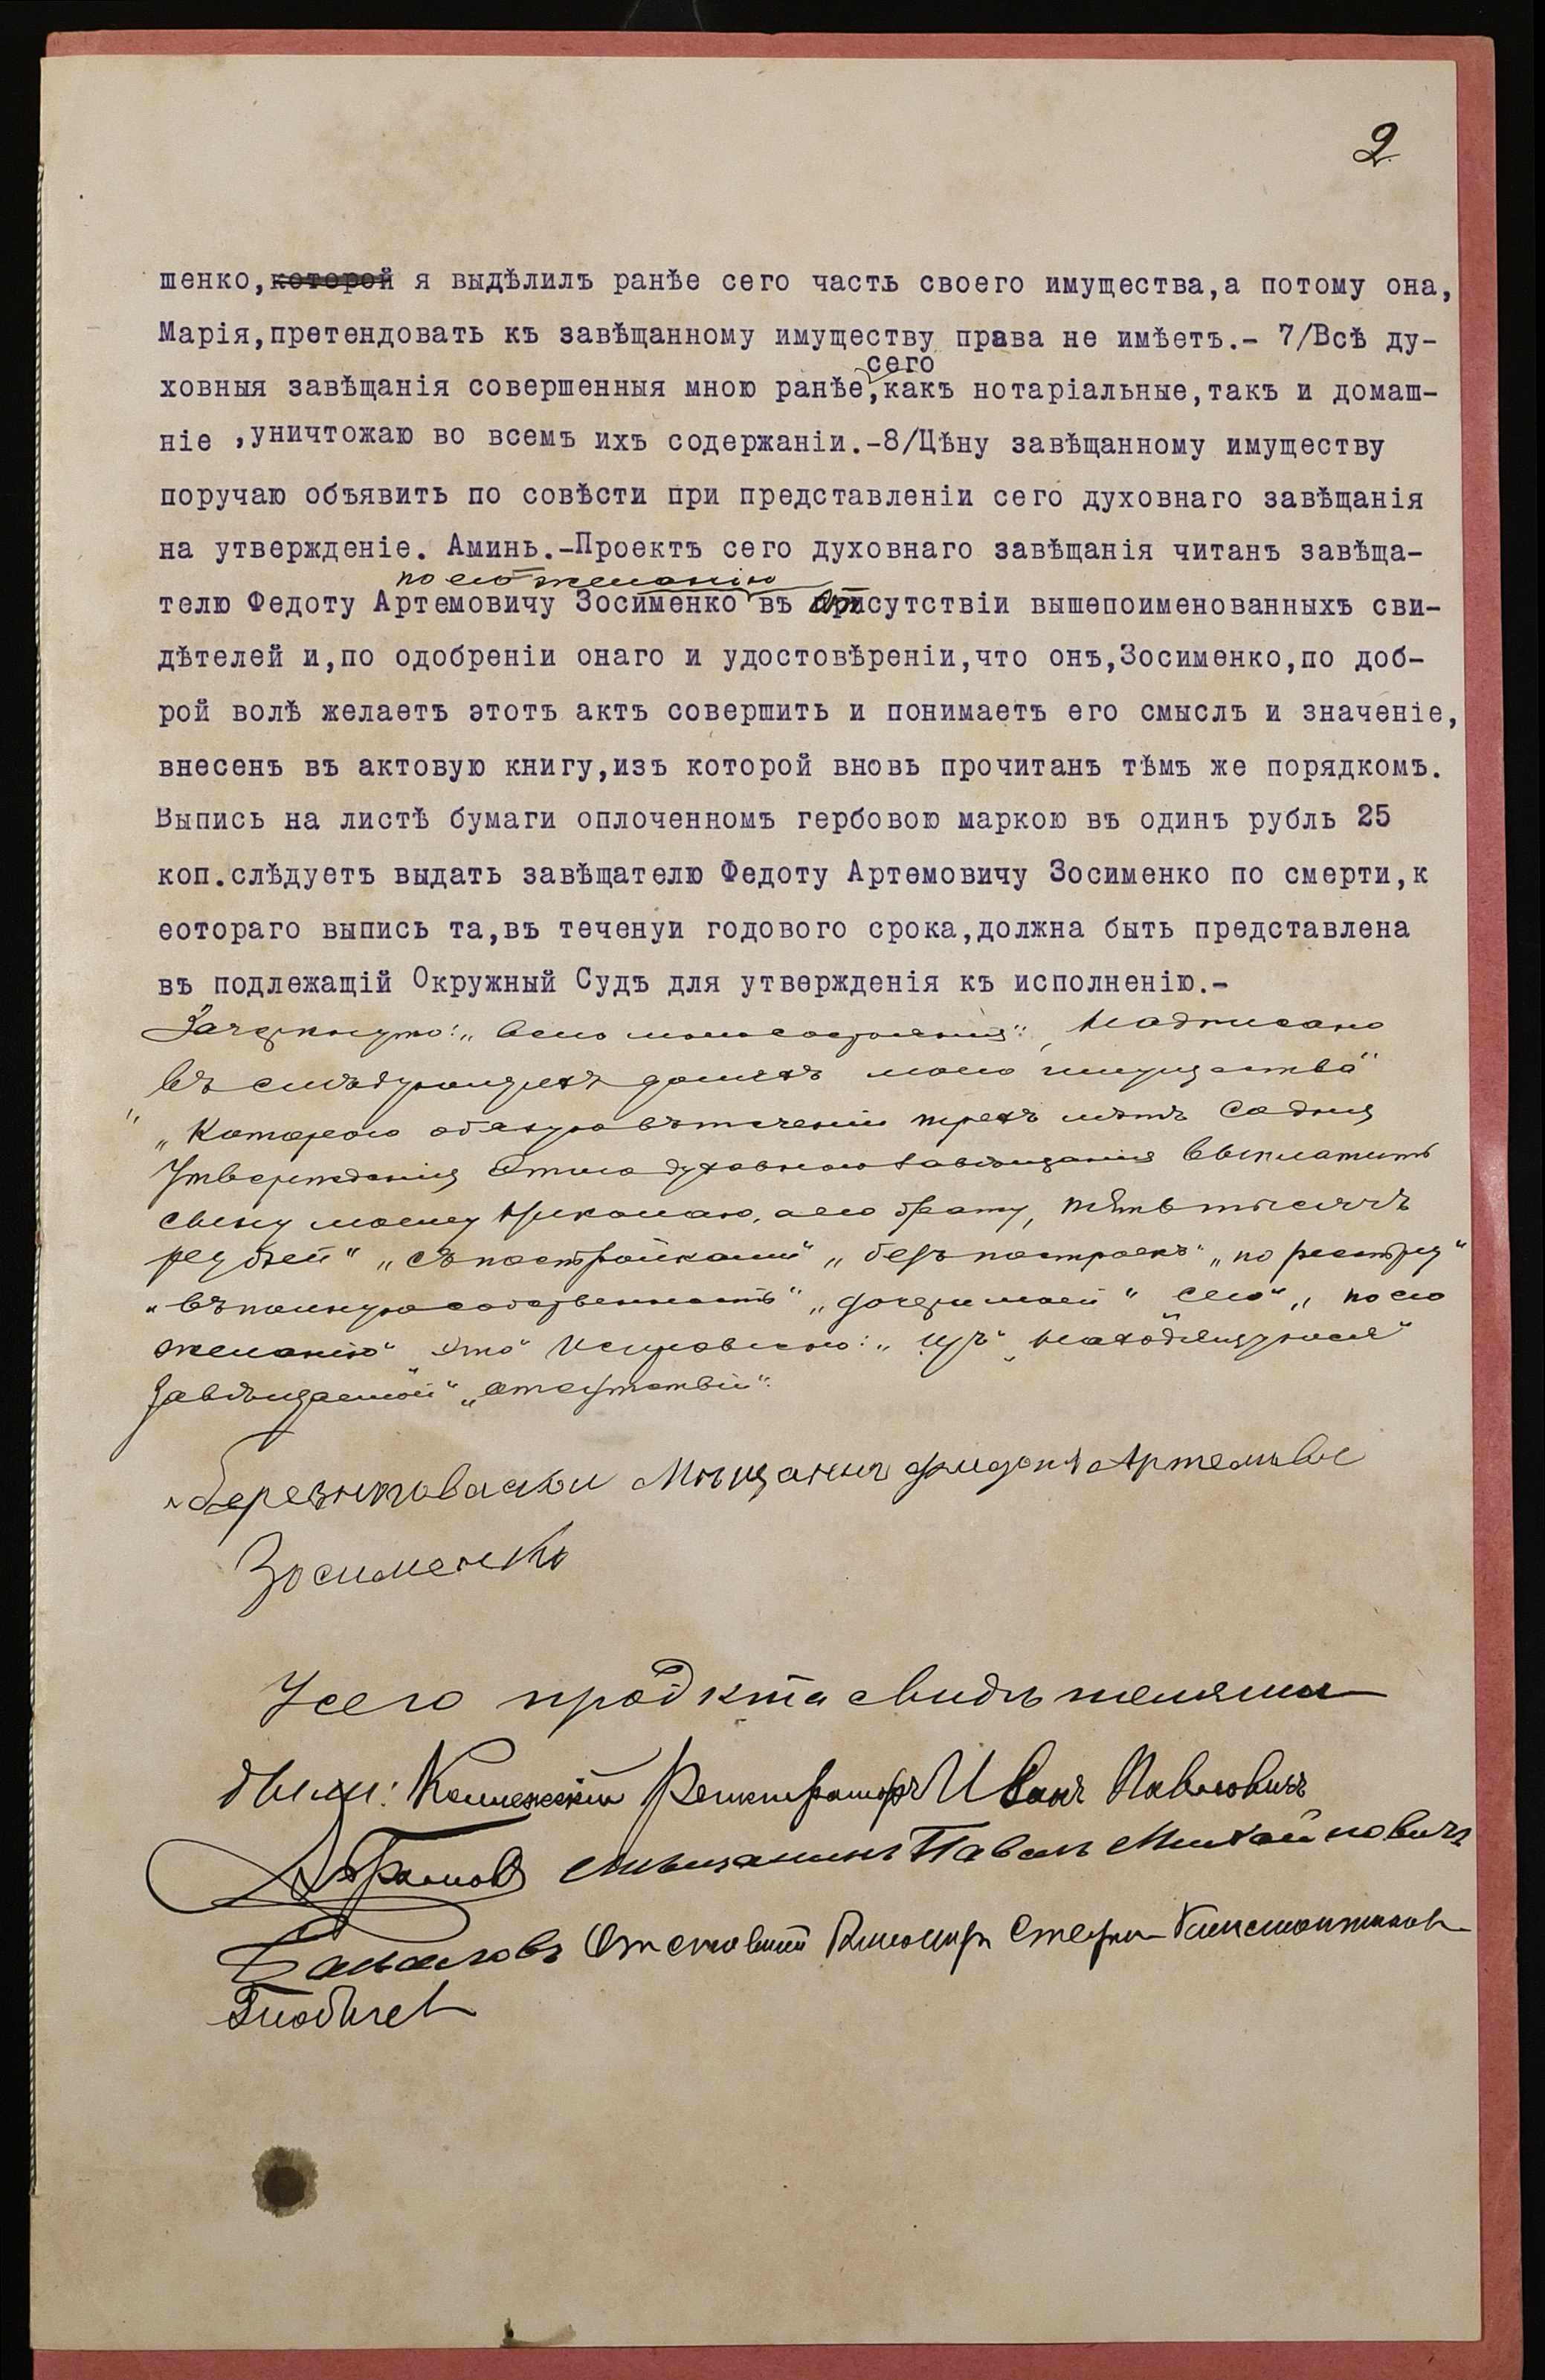 2
шенко,которой я выдѣлилъ ранѣе сего часть своего имущества,а потому она,
Марія,претендовать къ завѣщанному имуществу права не имѣетъ.- 7/Всѣ ду-
сего
ховныя завѣщанія совершенныя мною ранѣе,какъ нотаріальные,такъ и домаш-
ніе ,уничтожаю во всемъ ихъ содержаніи.-8/Цѣну завѣщанному имуществу
поручаю объявить по совѣсти при представленіи сего духовнаго завѣщанія
на утвержденіе. Аминь.-Проектъ сего духовнаго завѣщанія читанъ завѣща-
по его желанію
телю Федоту Артемовичу Зосименко въ отсутствіи вышепоименованныхъ сви-
дѣтелей и,по одобреніи онаго и удостовѣреніи,что онъ,Зосименко,по доб-
рой волѣ желаетъ этотъ актъ совершить и понимаетъ его смыслъ и значеніе,
внесенъ въ актовую книгу,изъ которой вновь прочитанъ тѣмъ же порядкомъ.
Выпись на листѣ бумаги оплоченномъ гербовою маркою въ одинъ рубль 25
коп.слѣдуетъ выдать завѣщателю Федоту Артемовичу Зосименко по смерти,к
еотораго выпись та,въ теченуи годового срока,должна быть представлена
въ подлежащій Окружный Судъ для утвержденія къ исполненію.-
Зачеркнуто: „всего моего состоянія". Надписано
въ слѣдующихъ доляхъ моего имущества"
„Котораго обязую въ теченіи трехъ лѣтъ со дня
Утвержденія Этого духовнаго завѣщанія Выплатить
сыну моему Николаю, а его брату, пять тысячъ
рублей" „съ постройками" „безъ построекъ" „по реестру"
„въ полную собственность" „дочери моей" „сего" „по его
желанію" Исправлено: „ „находящуюся"
Завѣщаемой" „отсутствіи".
Мѣщанинъ Федотъ Артемьевъ
Зосименко
У сего проэкта свидѣтелями
были: Коллежскій Регистраторъ Иванъ Павловичъ
Абрамовъ мѣщанинъ Павелъ Михайловичъ
Отставной Степанъ Константиновъ